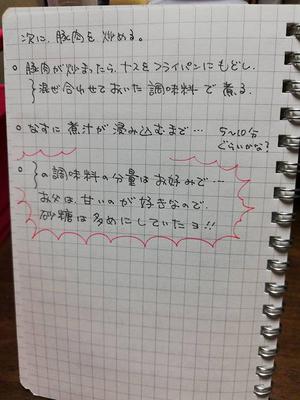 次に、豚肉を炒める。
○ 豚肉が炒まったら、ナスをフライパンにもどし、
}混ぜ合わせておいた調味料で煮る。
○ なすに煮汁が浸み込むまで… 5~10分
ぐらいかな?
○ }の調味料の分量はお好みで…
お父は、甘いのが好きなので、
砂糖は多めにしていたヨ!!